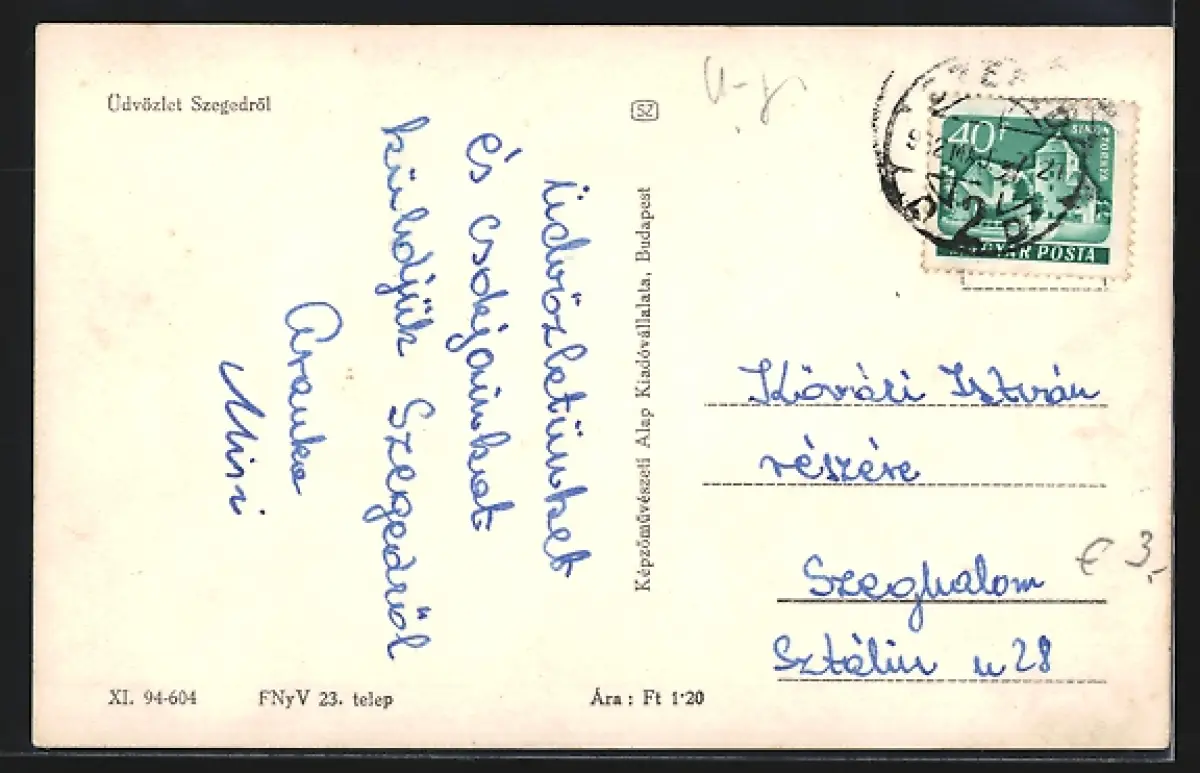 Üdvözlet Szegedről
Üdvözletünket
és csókjainkat
küldjük Szegedről
Aranka
Misi
SZ
Képzőművészeti Alap Kiadóvállalata, Budapest
40f
SIMONTORNYA
MAGYAR POSTA
Kővári István
részére
Szeghalom
Sztálin u 28
€ 3,-
XI. 94-604
FNyV 23. telep
Ára: Ft 1·20